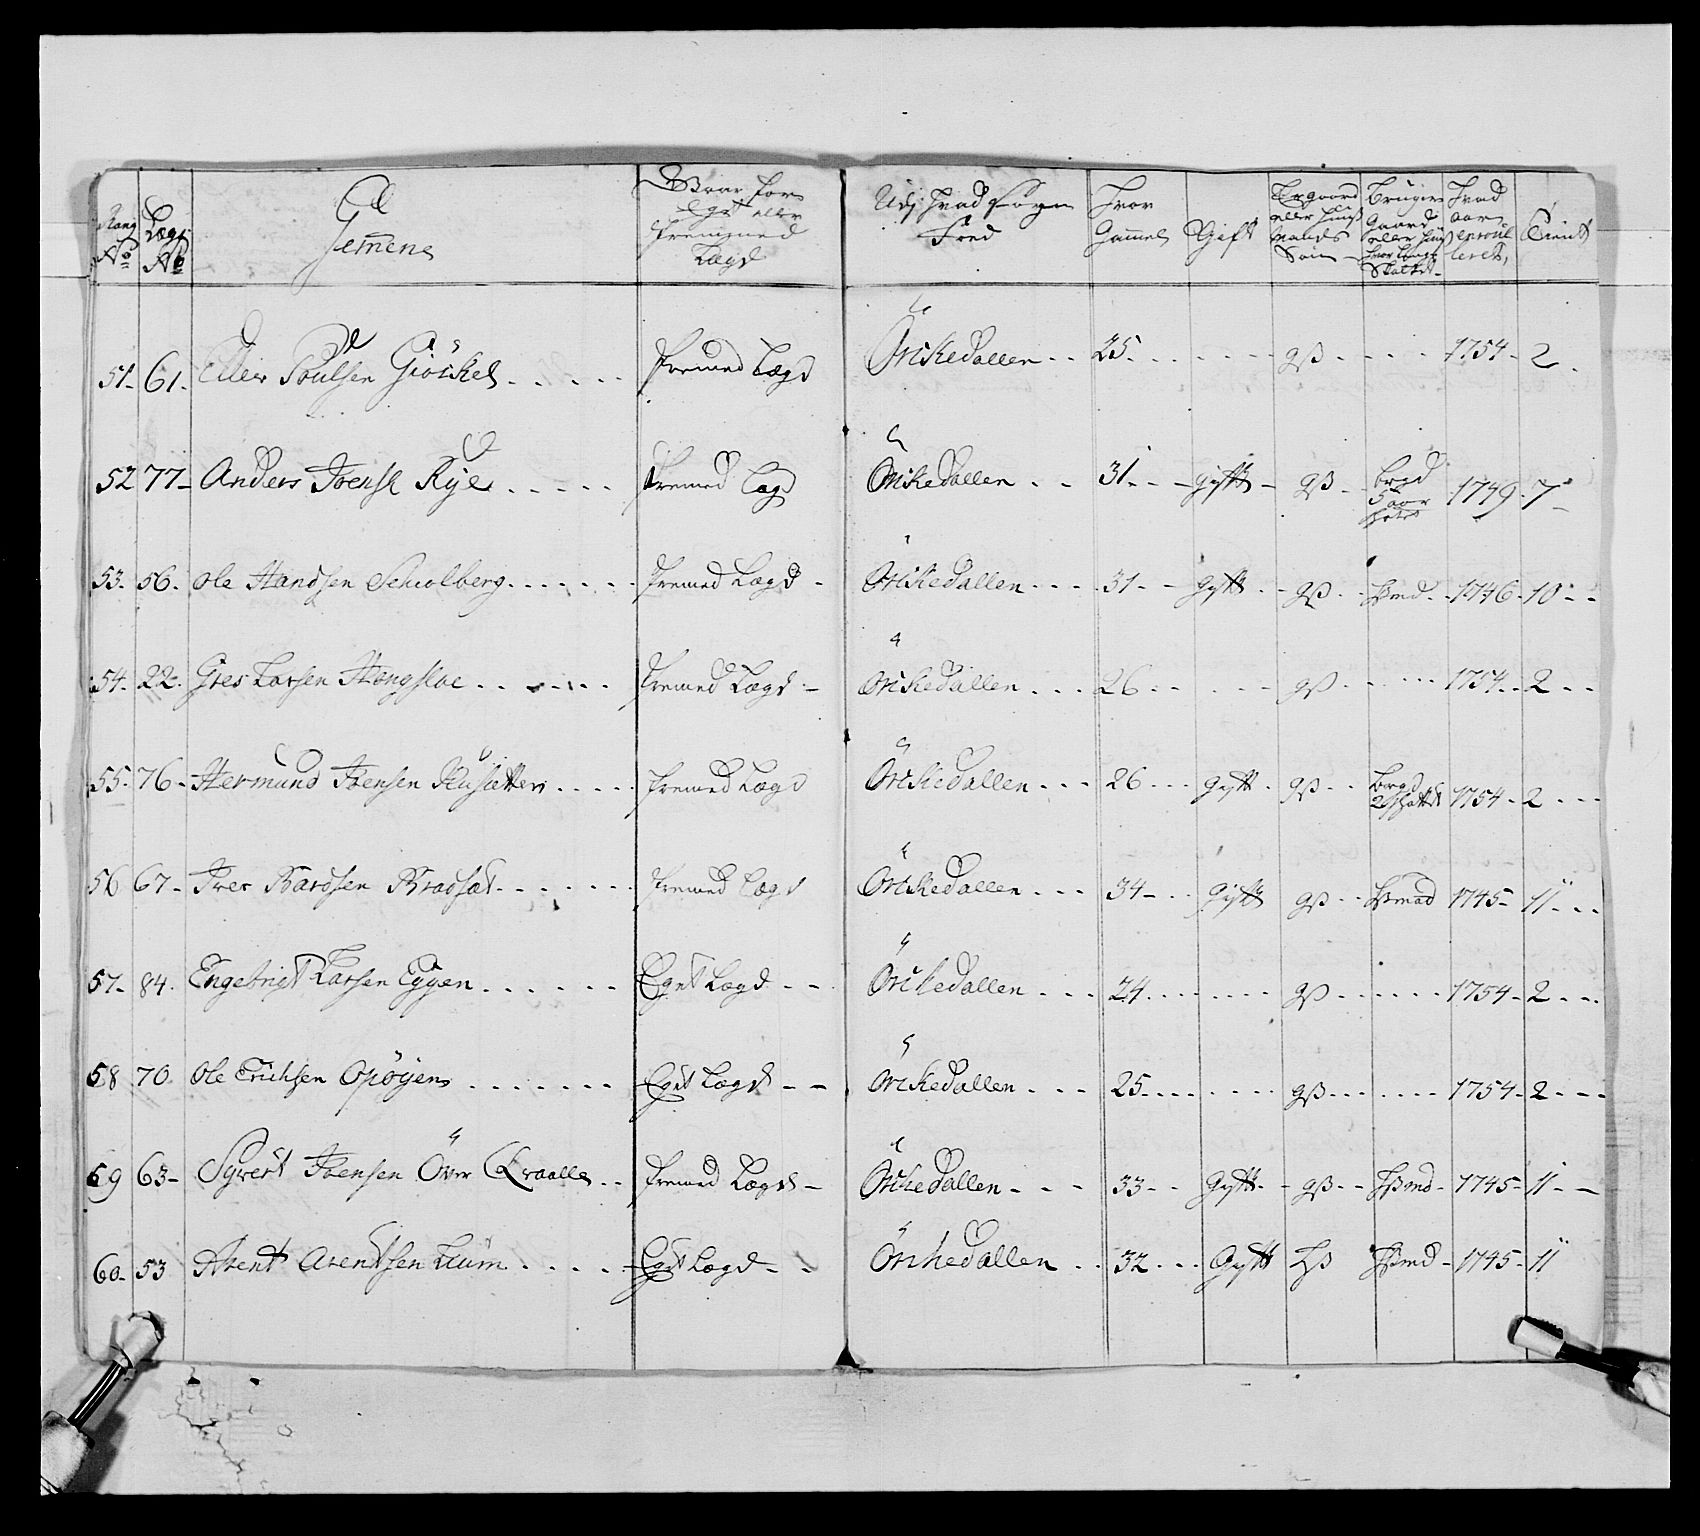 Rang No | Lægs No | Gemene | Svar for Eget eller fremmed Lægd | Udj hvad Sogn Fød | Hvor Gammel | Gift | Er gaard eller huus Mands Søn | Bruger Gaard eller huus hvor længe Skattet | Hvad aar enroulleret | Tient
51 - 61 - Eller Poulsen Giölkel - fremed Lægd - Örckedallen - 25 - gß - 1754 - 2
52 77 - Anders Joensk Rye - fremed Lægd - Örckedallen - 31 - gyft - gß - brgd 5 aar - 1749 - 7
53 - 56 - Ole Handsen Schiolberg - fremed Lægd - Örckedallen - 31 - gyft - gß - hßmd - 1746 - 10
54 - 22 - Gres Larsen Hongsloe - fremed Lægd - Örckedallen - 26 - gß - 1754 - 2
55 - 76 - Hermund Joensen - fremed Lægd - Örckedallen - 26 - gyft - gß - 1754 - 2
56 67 - Iver Bardsen - fremed Lægd - Örckedallen - 34 - gyft - gß - hßmd - 1745 - 11
57 - 84 - Engebrigt Larsen Eggen - Eget Lægd - Örckedallen - 24 - gß - 1754 - 2
58 70 Ole Erichsen Opöyens - Eget Lægd - Örckedallen - 25 - gß - 1754 - 2
59 63 - Syvert Joensen Över Qvaalle - fremed Lægd - Örckedallen - 33 - Gyft - gß - hßmd - 1745 - 11
60 - 53 Arent Arentsen Lium - Eget Lægd - Örckedallen - 32 - Gyft - hß - hßmd - 1745 - 11